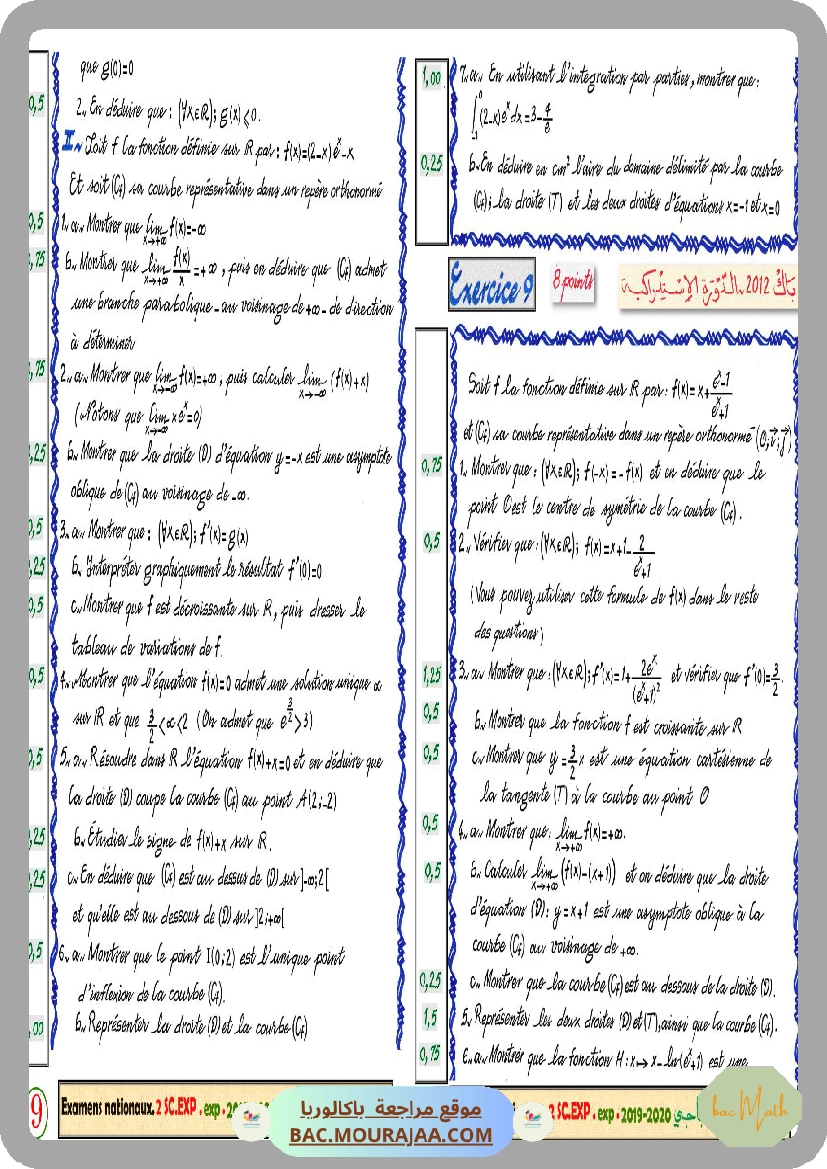 que g(0)=0
0,5
2.. En déduire que : (∀x∈ℝ); g(x)⩽0.
II~ Soit f la fonction définie sur ℝ par : f(x)=(2-x)eˣ-x
Et soit (Cf) sa courbe représentative dans un repère orthonormé
0,5 1.. a.. Montrer que lim x→+∞ f(x)=-∞
,75 b.. Montrer que lim x→+∞ f(x)/x = +∞ , puis en déduire que (Cf) admet
une branche parabolique - au voisinage de +∞ - de direction
à déterminer
,75 2.. a.. Montrer que lim x→-∞ f(x)=+∞ , puis calculer lim x→-∞ (f(x)+x)
(Notons que lim x→-∞ xeˣ=0)
,25 b.. Montrer que la droite (D) d'équation y=-x est une asymptote
oblique de (Cf) au voisinage de -∞.
0,5 3.. a.. Montrer que : (∀x∈ℝ); f'(x)=g(x)
,25 b.. Interpréter graphiquement le résultat f'(0)=0
0,5 c.. Montrer que f est décroissante sur ℝ, puis dresser le
tableau de variations de f.
0,5 4.. Montrer que l'équation f(x)=0 admet une solution unique α
sur ℝ et que 3/2<α<2 (On admet que e^(3/2)>3)
0,5 5.. a.. Résoudre dans ℝ l'équation f(x)+x=0 et en déduire que
la droite (D) coupe la courbe (Cf) au point A(2;-2)
,25 b.. Étudier le signe de f(x)+x sur ℝ.
,25 c.. En déduire que (Cf) est au dessus de (D) sur ]-∞;2[
et qu'elle est au dessous de (D) sur ]2;+∞[
0,5 6.. a.. Montrer que le point I(0;2) est l'unique point
d'inflexion de la courbe (Cf).
,00 b.. Représenter la droite (D) et la courbe (Cf)
1,00 7.. a.. En utilisant l'intégration par parties, montrer que :
∫₋₁⁰ (2-x)eˣdx=3-4/e
0,25 b.. En déduire en cm² l'aire du domaine délimité par la courbe
(Cf); la droite (T) et les deux droites d'équations x=-1 et x=0
Exercice 9 8 points باك 2012 ـ الدّوْرَة الإسْتِدْرَاكية
Soit f la fonction définie sur ℝ par : f(x)=x+(eˣ-1)/(eˣ+1)
et (Cf) sa courbe représentative dans un repère orthonormé (O;i⃗;j⃗)
0,75 1.. Montrer que : (∀x∈ℝ); f(-x)=-f(x) et en déduire que le
point O est le centre de symétrie de la courbe (Cf).
0,5 2.. Vérifier que : (∀x∈ℝ); f(x)=x+1-2/(eˣ+1)
(Vous pouvez utiliser cette formule de f(x) dans le reste
des questions)
1,25 3.. a.. Montrer que : (∀x∈ℝ); f'(x)=1+2eˣ/(eˣ+1)² et vérifier que f'(0)=3/2.
0,5 b.. Montrer que la fonction f est croissante sur ℝ
0,5 c.. Montrer que y=3/2x est une équation cartésienne de
la tangente (T) à la courbe au point O
0,5 4.. a.. Montrer que : lim x→+∞ f(x)=+∞.
0,5 b.. Calculer lim x→+∞ (f(x)-(x+1)) et en déduire que la droite
d'équation (D): y=x+1 est une asymptote oblique à la
courbe (Cf) au voisinage de +∞.
0,25 c.. Montrer que la courbe (Cf) est au dessous de la droite (D).
1,5 5.. Représenter les deux droites (D) et (T), ainsi que la courbe (Cf).
0,75 6.. a.. Montrer que la fonction H : x↦x-ln(eˣ+1) est une
9
Examens nationaux. 2 SC.EXP . exp
موقع مراجعة باكالوريا
BAC.MOURAJAA.COM
2 SC.EXP . exp . 2019-2020
bac Math